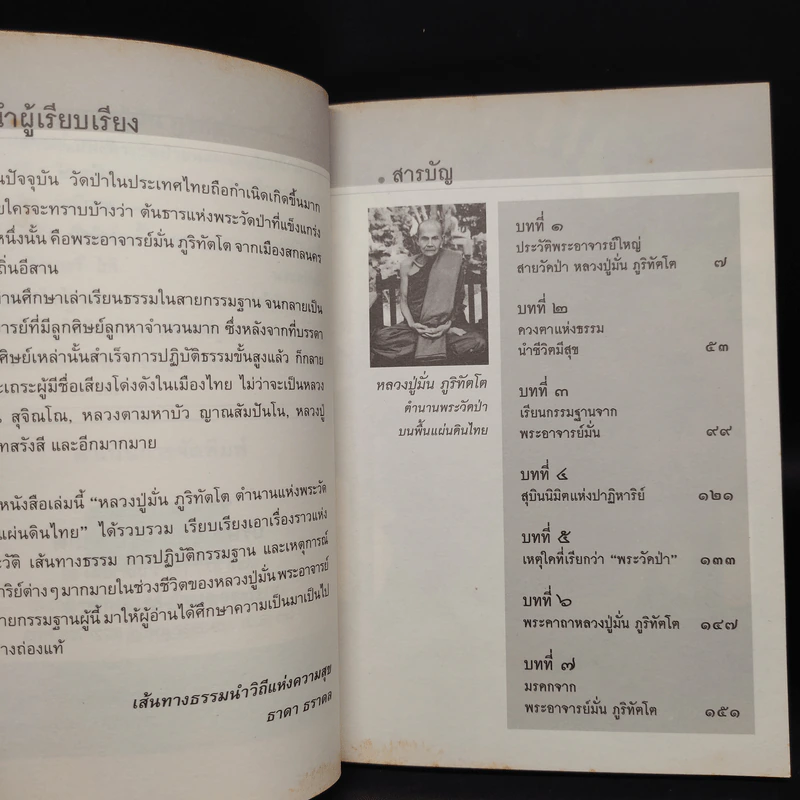 นำผู้เรียบเรียง
นปัจจุบัน วัดป่าในประเทศไทยถือกำเนิดเกิดขึ้นมาก
ยใครจะทราบบ้างว่า ต้นธารแห่งพระวัดป่าที่แข็งแกร่ง
หนึ่งนั้น คือพระอาจารย์มั่น ภูริทัตโต จากเมืองสกลนคร
ถิ่นอีสาน
านศึกษาเล่าเรียนธรรมในสายกรรมฐาน จนกลายเป็น
ารย์ที่มีลูกศิษย์ลูกหาจำนวนมาก ซึ่งหลังจากที่บรรดา
ศิษย์เหล่านั้นสำเร็จการปฏิบัติธรรมขั้นสูงแล้ว ก็กลาย
ะเถระผู้มีชื่อเสียงโด่งดังในเมืองไทย ไม่ว่าจะเป็นหลวง
น สุจิณโณ, หลวงตามหาบัว ญาณสัมปันโน, หลวงปู่
ทสรังสี และอีกมากมาย
หนังสือเล่มนี้ “หลวงปู่มั่น ภูริทัตโต ตำนานแห่งพระวัด
แผ่นดินไทย” ได้รวบรวม เรียบเรียงเอาเรื่องราวแห่ง
ะวัติ เส้นทางธรรม การปฏิบัติกรรมฐาน และเหตุการณ์
าริย์ต่างๆ มากมายในช่วงชีวิตของหลวงปู่มั่น พระอาจารย์
ายกรรมฐานผู้นี้ มาให้ผู้อ่านได้ศึกษาความเป็นมาเป็นไป
างถ่องแท้
เส้นทางธรรมนำวิถีแห่งความสุข
ธาดา ธราดล
สารบัญ
หลวงปู่มั่น ภูริทัตโต
ตำนานพระวัดป่า
บนพื้นแผ่นดินไทย
บทที่ ๑
ประวัติพระอาจารย์ใหญ่
สายวัดป่า หลวงปู่มั่น ภูริทัตโต ๗
บทที่ ๒
ดวงตาแห่งธรรม
นำชีวิตมีสุข ๕๓
บทที่ ๓
เรียนกรรมฐานจาก
พระอาจารย์มั่น ๙๙
บทที่ ๔
สุบินนิมิตแห่งปาฏิหาริย์ ๑๒๑
บทที่ ๕
เหตุใดที่เรียกว่า “พระวัดป่า” ๑๓๓
บทที่ ๖
พระคาถาหลวงปู่มั่น ภูริทัตโต ๑๔๗
บทที่ ๗
มรดกจาก
พระอาจารย์มั่น ภูริทัตโต ๑๕๑